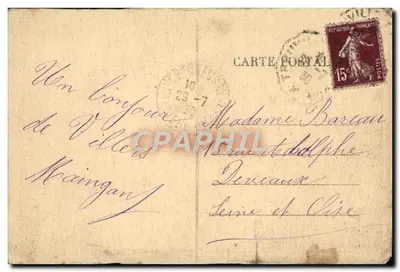 CARTE POSTALE
RÉPUBLIQUE FRANÇAISE
15c
POSTES
29 -7
Un bonjour
de Villers
Maingan
Madame Bareau
rue Adolphe
Deveaux
Seine et Oise
CPAPHIL